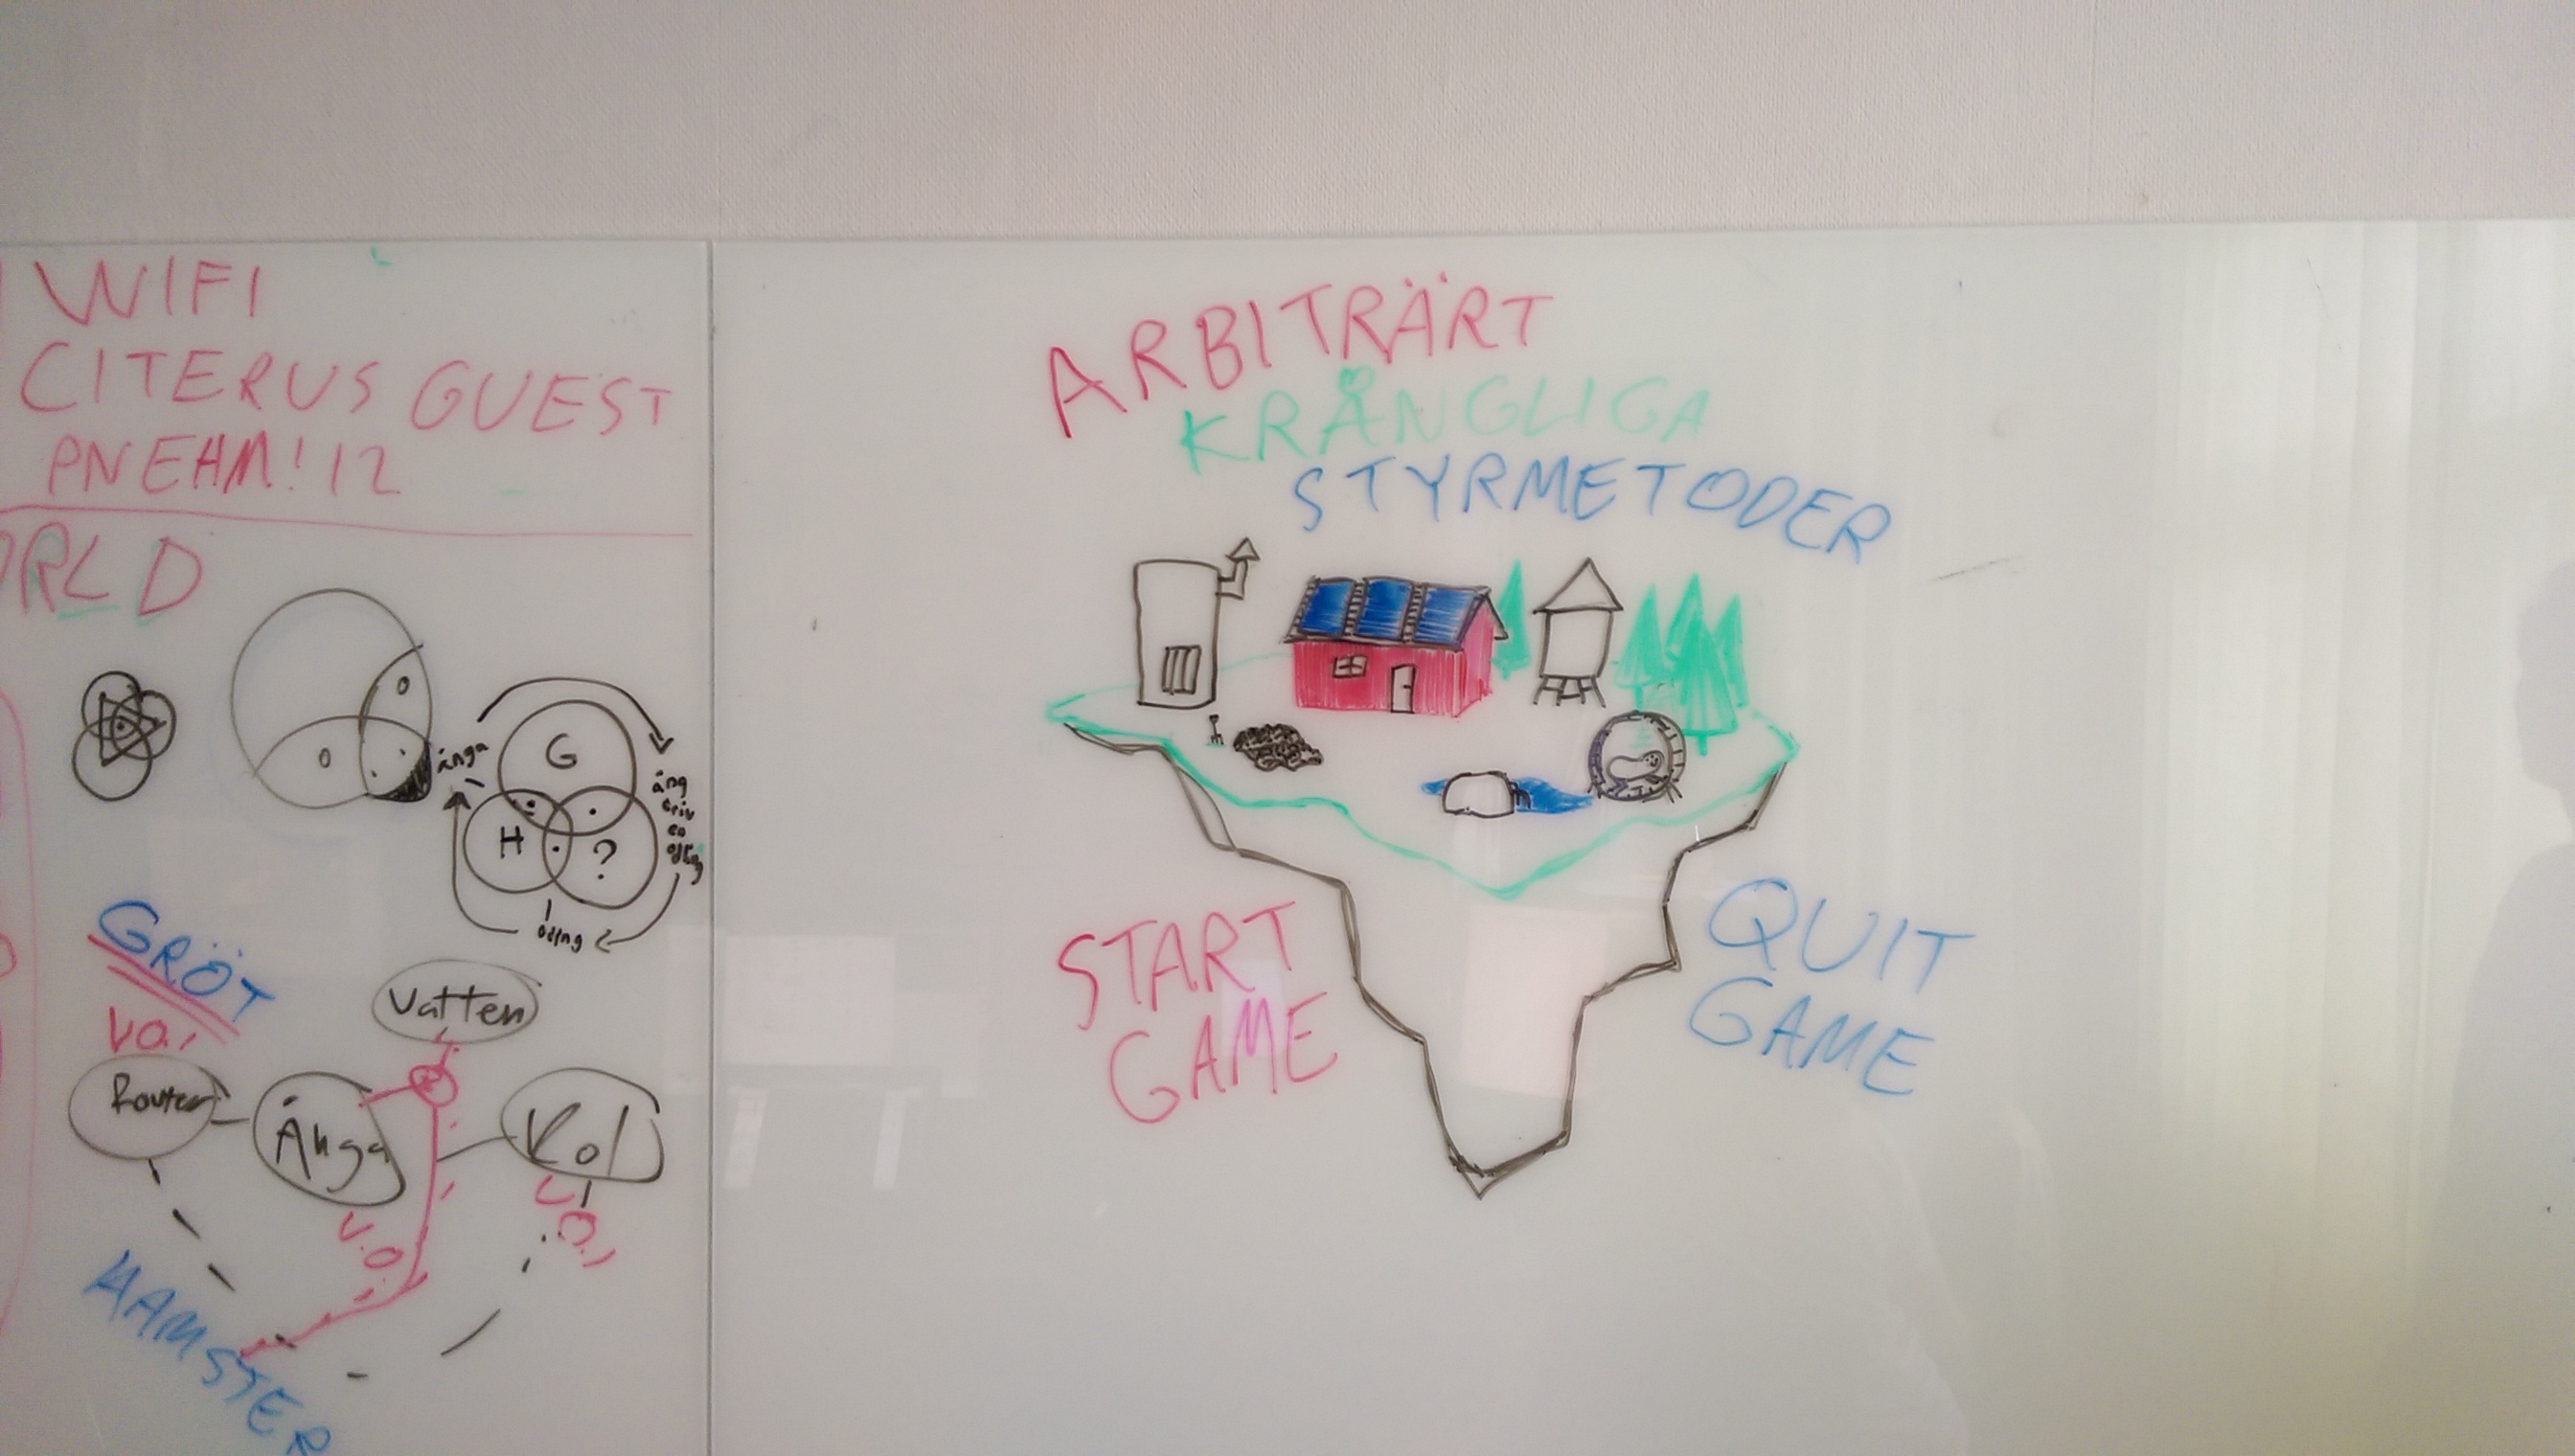 WIFI
CITERUS GUEST
PNEHM!12
ORLD
G
H
?
ånga
odlng
GRÖT
Vatten
Router
Ånga
Kol
V.O.
HAMSTER
ARBITRÄRT
KRÅNGLIGA
STYRMETODER
START
GAME
QUIT
GAME